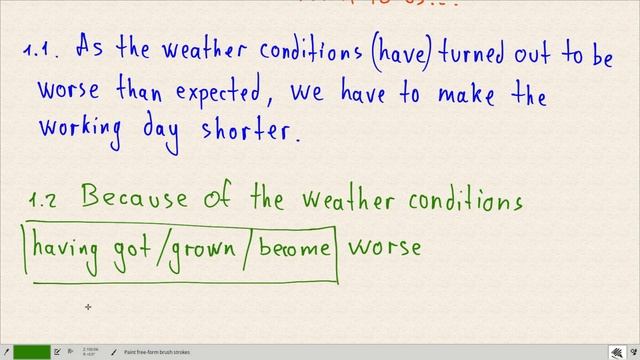 1.1. As the weather conditions (have) turned out to be
worse than expected, we have to make the
working day shorter.
1.2 Because of the weather conditions
having got/grown/become worse
Paint free-form brush strokes